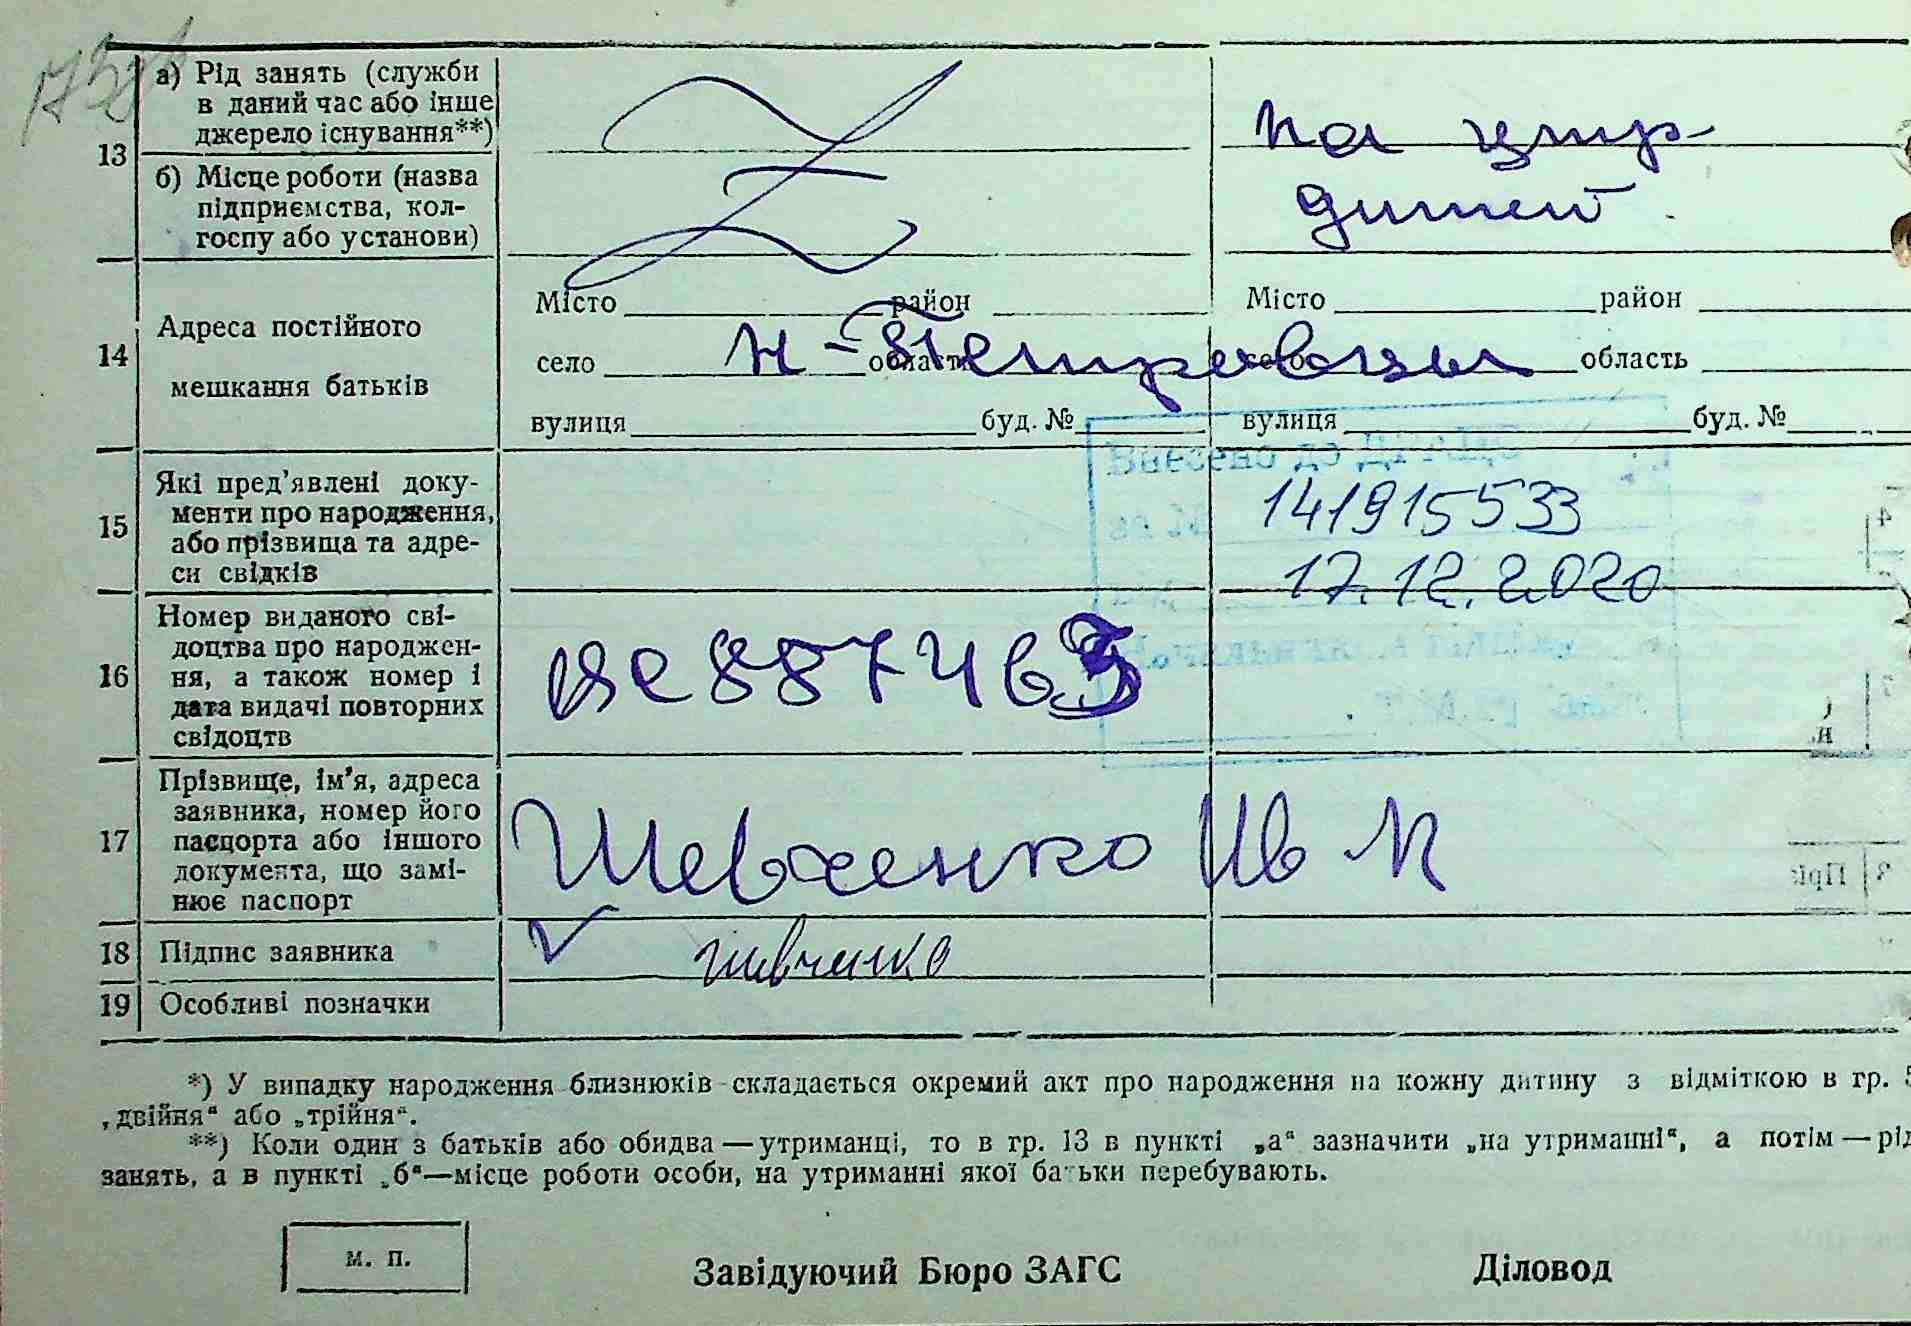 13
а) Рід занять (служби
в даний час або інше
джерело існування**)
на утр-
б) Місце роботи (назва
підприємства, кол-
госпу або установи)
дитей
14
Адреса постійного
мешкання батьків
Місто район Місто район
село область село область
Н-Петровцы
вулиця буд. № вулиця буд. №
15
Які пред'явлені доку-
менти про народження,
або прізвища та адре-
си свідків
141915533
17.12.2020
16
Номер виданого сві-
доцтва про народжен-
ня, а також номер і
дата видачі повторних
свідоцтв
887463
17
Прізвище, ім'я, адреса
заявника, номер його
паспорта або іншого
документа, що замі-
нює паспорт
Шевченко Ив М
18 Підпис заявника
Шевченко
19 Особливі позначки
*) У випадку народження близнюків складається окремий акт про народження на кожну дитину з відміткою в гр. 5
„двійня“ або „трійня“.
**) Коли один з батьків або обидва — утриманці, то в гр. 13 в пункті „а“ зазначити „на утриманні“, а потім — рід
занять, а в пункті „б“—місце роботи особи, на утриманні якої батьки перебувають.
м. п.
Завідуючий Бюро ЗАГС Діловод